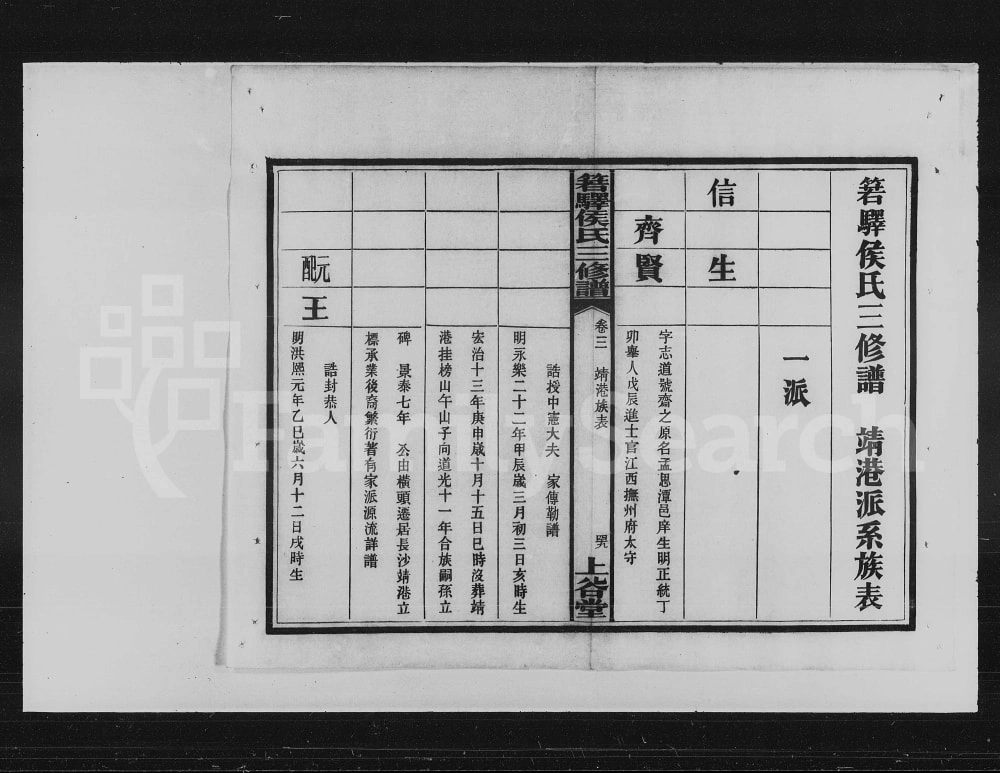 箬驛侯氏三修譜 靖港派系族表
一派
信生
齊賢
字志道號齋之原名孟思潭邑庠生明正統丁
卯舉人戊辰進士官江西撫州府太守
箬驛侯氏三修譜 卷三 靖港族表 上谷堂
誥授中憲大夫 家傳勒譜
明永樂二十二年甲辰歲三月初三日亥時生
宏治十三年庚申歲十月十五日巳時沒葬靖
港挂榜山午山子向道光十一年合族嗣孫立
碑 景泰七年 公由橫頭遷居長沙靖港立
標承業後裔繁衍著有家派源流詳譜
元配王
誥封恭人
明洪熙元年乙巳歲六月十二日戌時生
FamilySearch